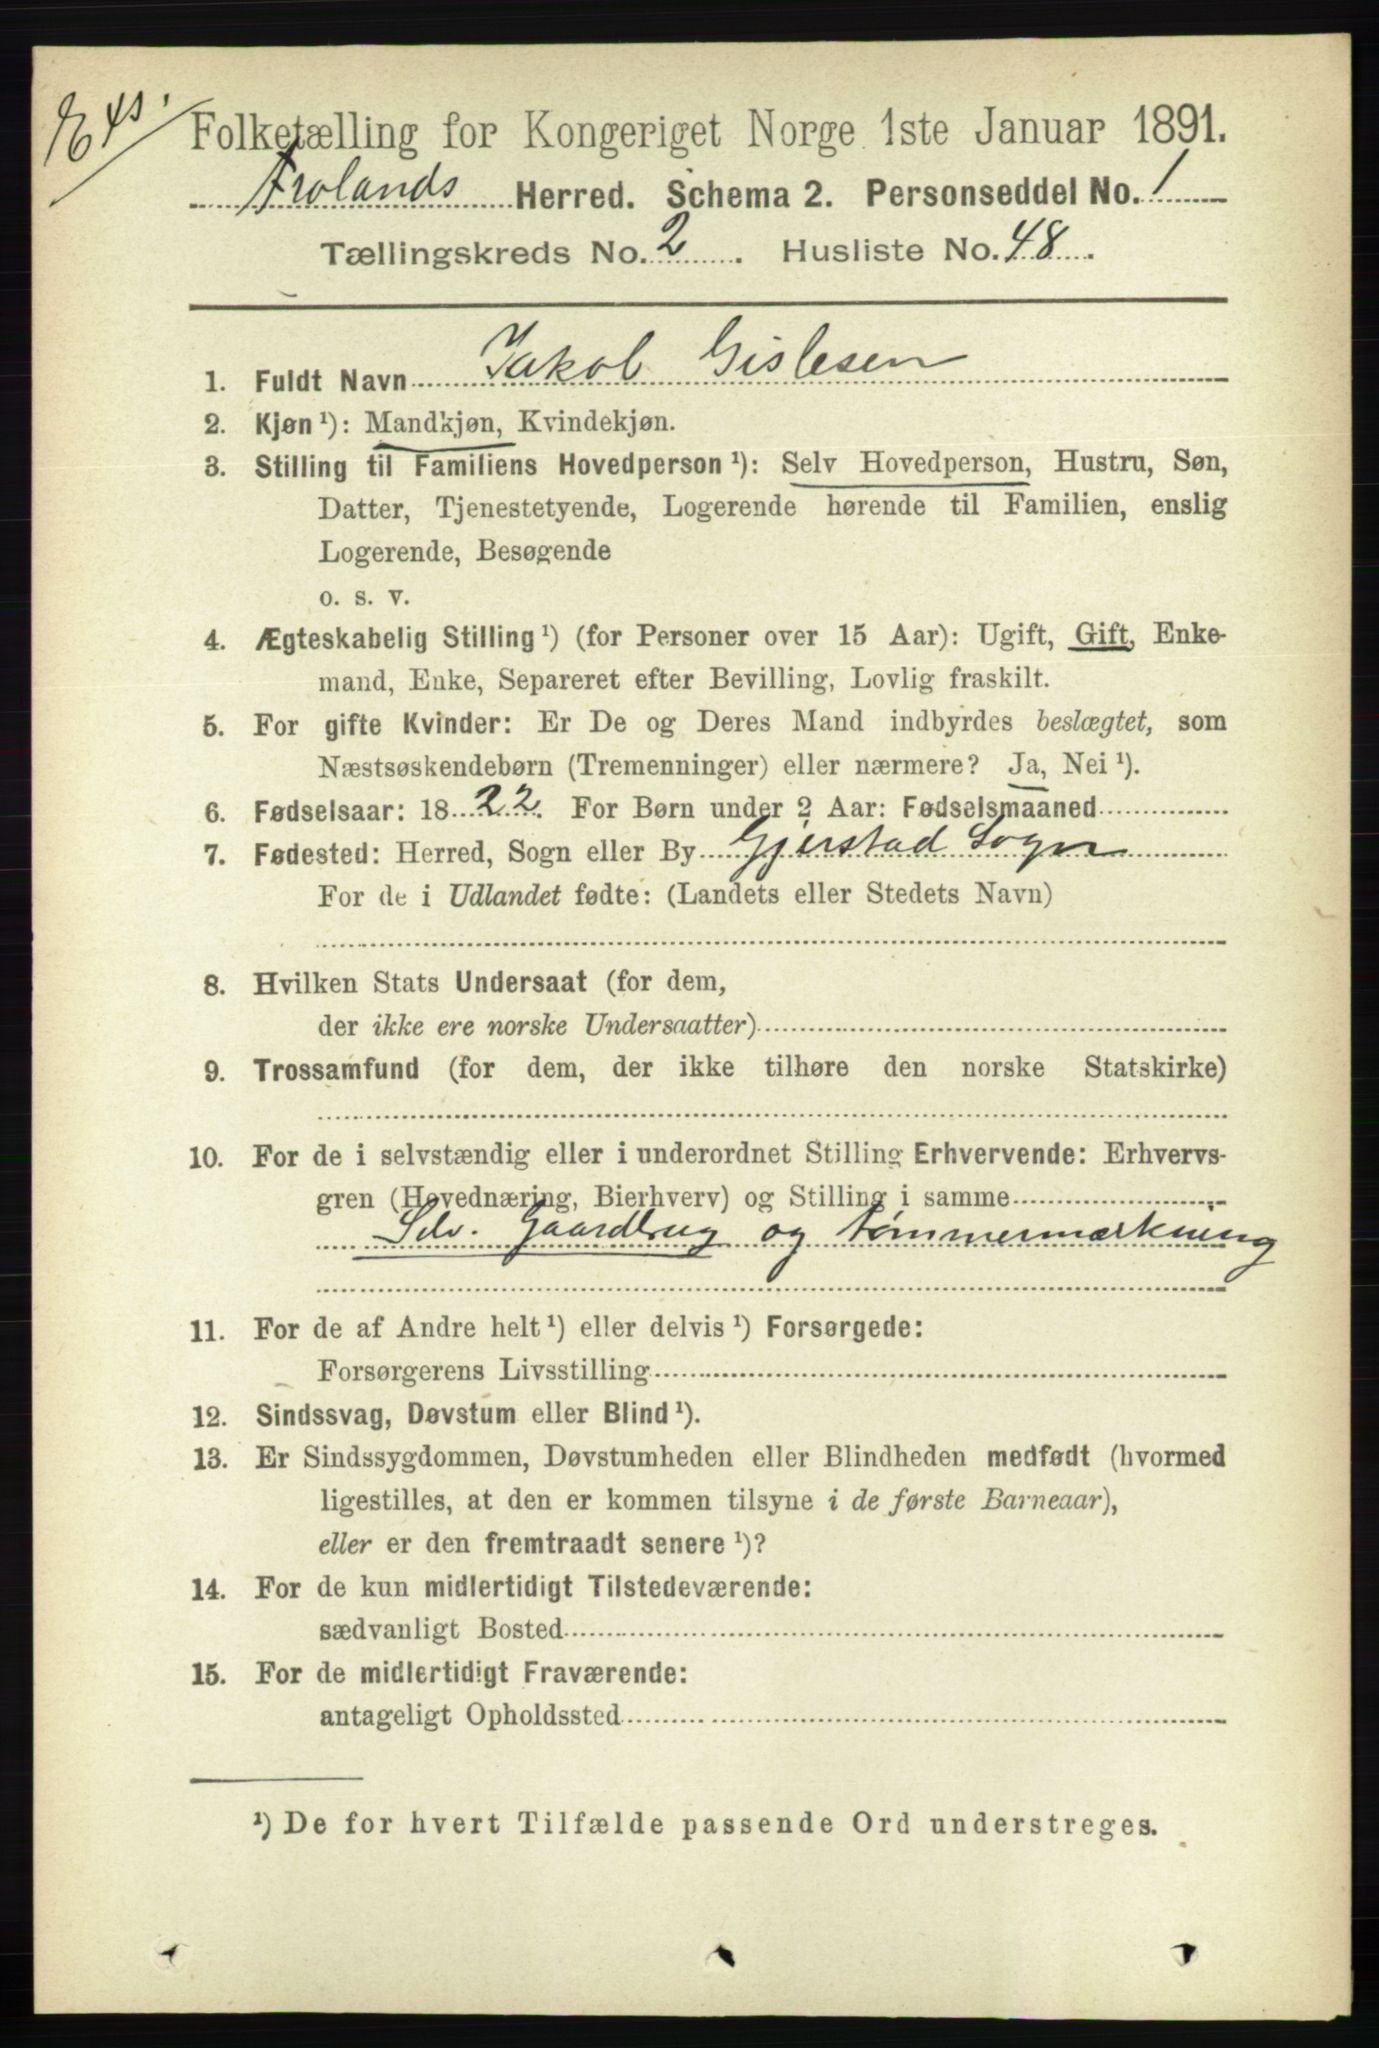 Folketælling for Kongeriget Norge 1ste Januar 1891.
Frolands Herred. Schema 2. Personseddel No. 1
Tællingskreds No. 2. Husliste No. 48.
1. Fuldt Navn Jakob Gislesen
2. Kjøn ¹): Mandkjøn, Kvindekjøn.
3. Stilling til Familiens Hovedperson ¹): Selv Hovedperson, Hustru, Søn,
Datter, Tjenestetyende, Logerende hørende til Familien, enslig
Logerende, Besøgende
o. s. v.
4. Ægteskabelig Stilling ¹) (for Personer over 15 Aar): Ugift, Gift, Enke-
mand, Enke, Separeret efter Bevilling, Lovlig fraskilt.
5. For gifte Kvinder: Er De og Deres Mand indbyrdes beslægtet, som
Næstsøskendebørn (Tremenninger) eller nærmere? Ja, Nei ¹).
6. Fødselsaar: 18 22. For Børn under 2 Aar: Fødselsmaaned
7. Fødested: Herred, Sogn eller By Gjerstad Sogn
For de i Udlandet fødte: (Landets eller Stedets Navn)
8. Hvilken Stats Undersaat (for dem,
der ikke ere norske Undersaatter)
9. Trossamfund (for dem, der ikke tilhøre den norske Statskirke)
10. For de i selvstændig eller i underordnet Stilling Erhvervende: Erhvervs-
gren (Hovednæring, Bierhverv) og Stilling i samme
Selv. Gaardbrug og tømmermærkning
11. For de af Andre helt ¹) eller delvis ¹) Forsørgede:
Forsørgerens Livsstilling
12. Sindssvag, Døvstum eller Blind ¹).
13. Er Sindssygdommen, Døvstumheden eller Blindheden medfødt (hvormed
ligestilles, at den er kommen tilsyne i de første Barneaar),
eller er den fremtraadt senere ¹)?
14. For de kun midlertidigt Tilstedeværende:
sædvanligt Bosted
15. For de midlertidigt Fraværende:
antageligt Opholdssted
¹) De for hvert Tilfælde passende Ord understreges.